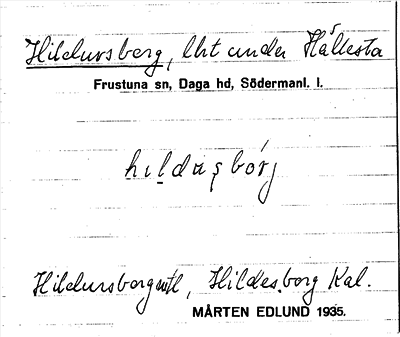 Hildursberg, lht under Hållesta
Frustuna sn, Daga hd, Södermanl. l.
hıldaşbórj
Hildursborg mtl, Hildesborg Kal.
MÅRTEN EDLUND 1935.